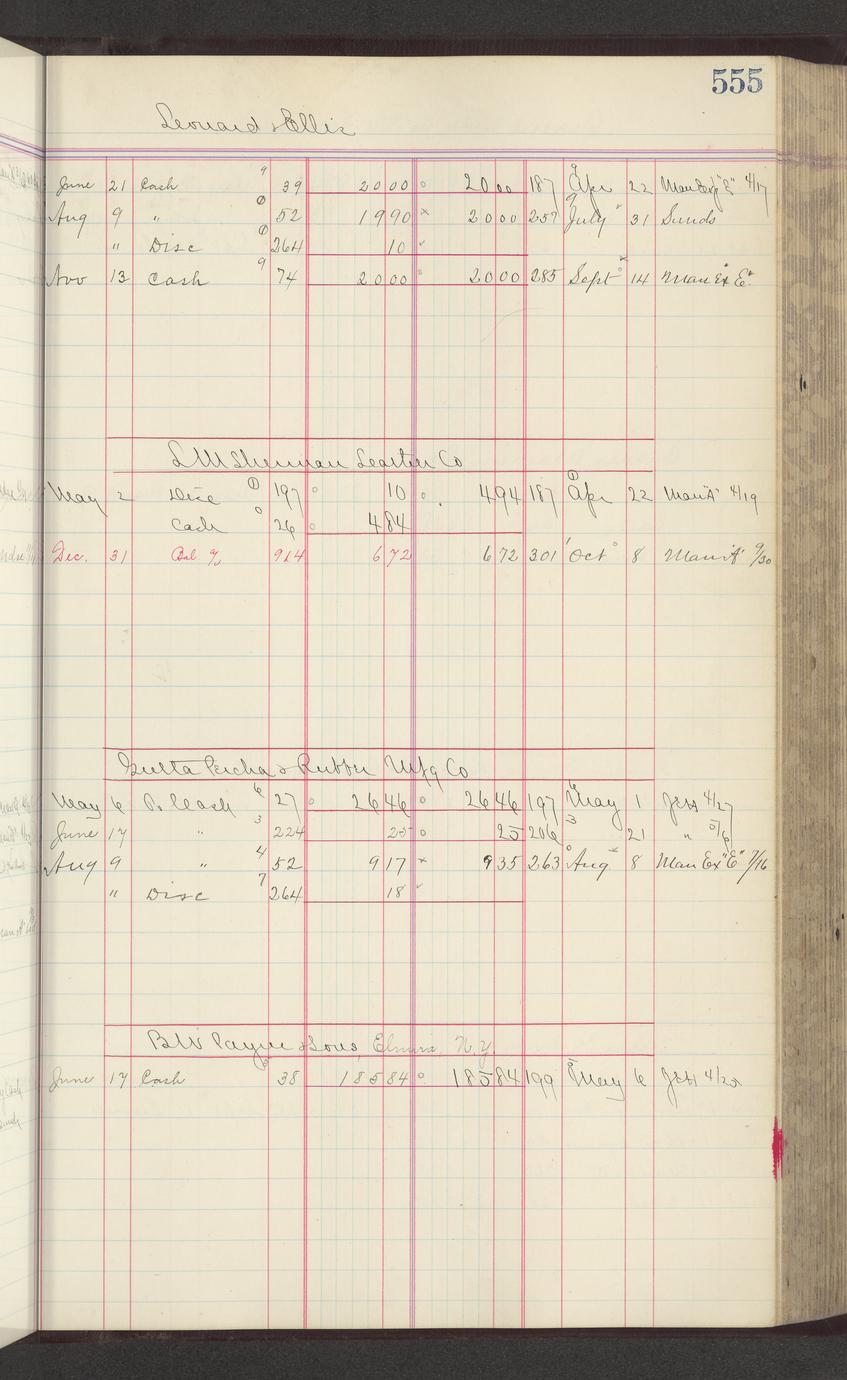 555
Leonard & Ellis
June 21 Cash 9 39 2000 o 2000 187 9 Apr 22 Man Exp "E" 4/17
Aug 9 " 0 52 1990 x 2000 257 9 July 31 Sunds
" Disc 0 264 10 ✓
Nov 13 Cash 9 74 2000 2000 285 Sept 14 Man Ex E"
L M Sherman Leather Co
May 2 Disc 1 197 o 10 o 494 187 1 Apr 22 Man "A" 4/19
Cash 0 26 o 484
Dec. 31 Bal 914 672 672 301 Oct 8 Man "A" 9/30
Gutta Percha & Rubber Mfg Co
May 6 P. Cash 6 27 o 2646 o 2646 197 6 May 1 4/27
June 17 " 3 224 25 o 25 206 3 21 " 5/6
Aug 9 " 4 52 917 x 935 263 Aug 8 Man Ex "E" 7/16
" Disc 7 264 18 ✓
B W Payne & Sons, Elmira, N.Y.
June 17 Cash 38 18584 o 18584 199 May 6 4/25